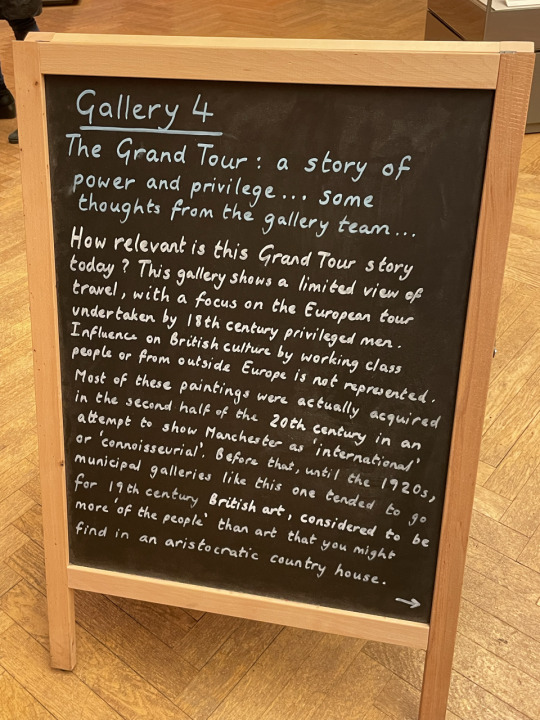 Gallery 4
The Grand Tour : a story of
power and privilege... some
thoughts from the gallery team...
How relevant is this Grand Tour story
today ? This gallery shows a limited view of
travel, with a focus on the European tour
undertaken by 18th century privileged men.
Influence on British culture by working class
people or from outside Europe is not represented.
Most of these paintings were actually acquired
in the second half of the 20th century in an
attempt to show Manchester as 'international'
or 'connoisseurial'. Before that, until the 1920s,
municipal galleries like this one tended to go
for 19th century British art, considered to be
more 'of the people' than art that you might
find in an aristocratic country house.
→